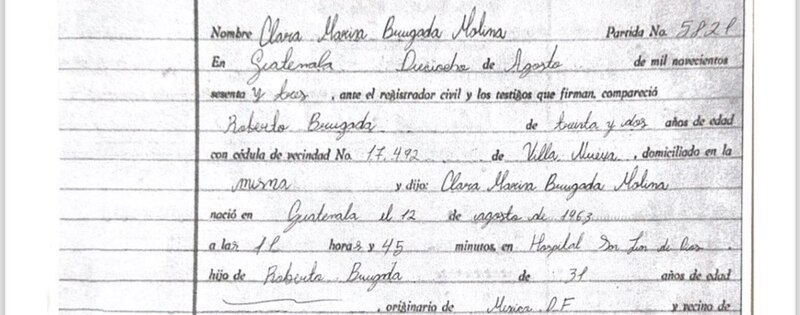 Nombre Clara Marina Brugada Molina Partida No. 5821
En Guatemala Dieciocho de Agosto de mil novecientos
sesenta y tres, ante el registrador civil y los testigos que firman, compareció
Roberto Brugada de treinta y dos años de edad
con cédula de vecindad No. 17,492 de Villa Nueva, domiciliado en la
misma y dijo: Clara Marina Brugada Molina
nació en Guatemala el 12 de agosto de 1963
a las 11 horas y 45 minutos, en Hospital de Dios
hijo de Roberto Brugada de 31 años de edad
, originario de Mexico D.F y vecino de